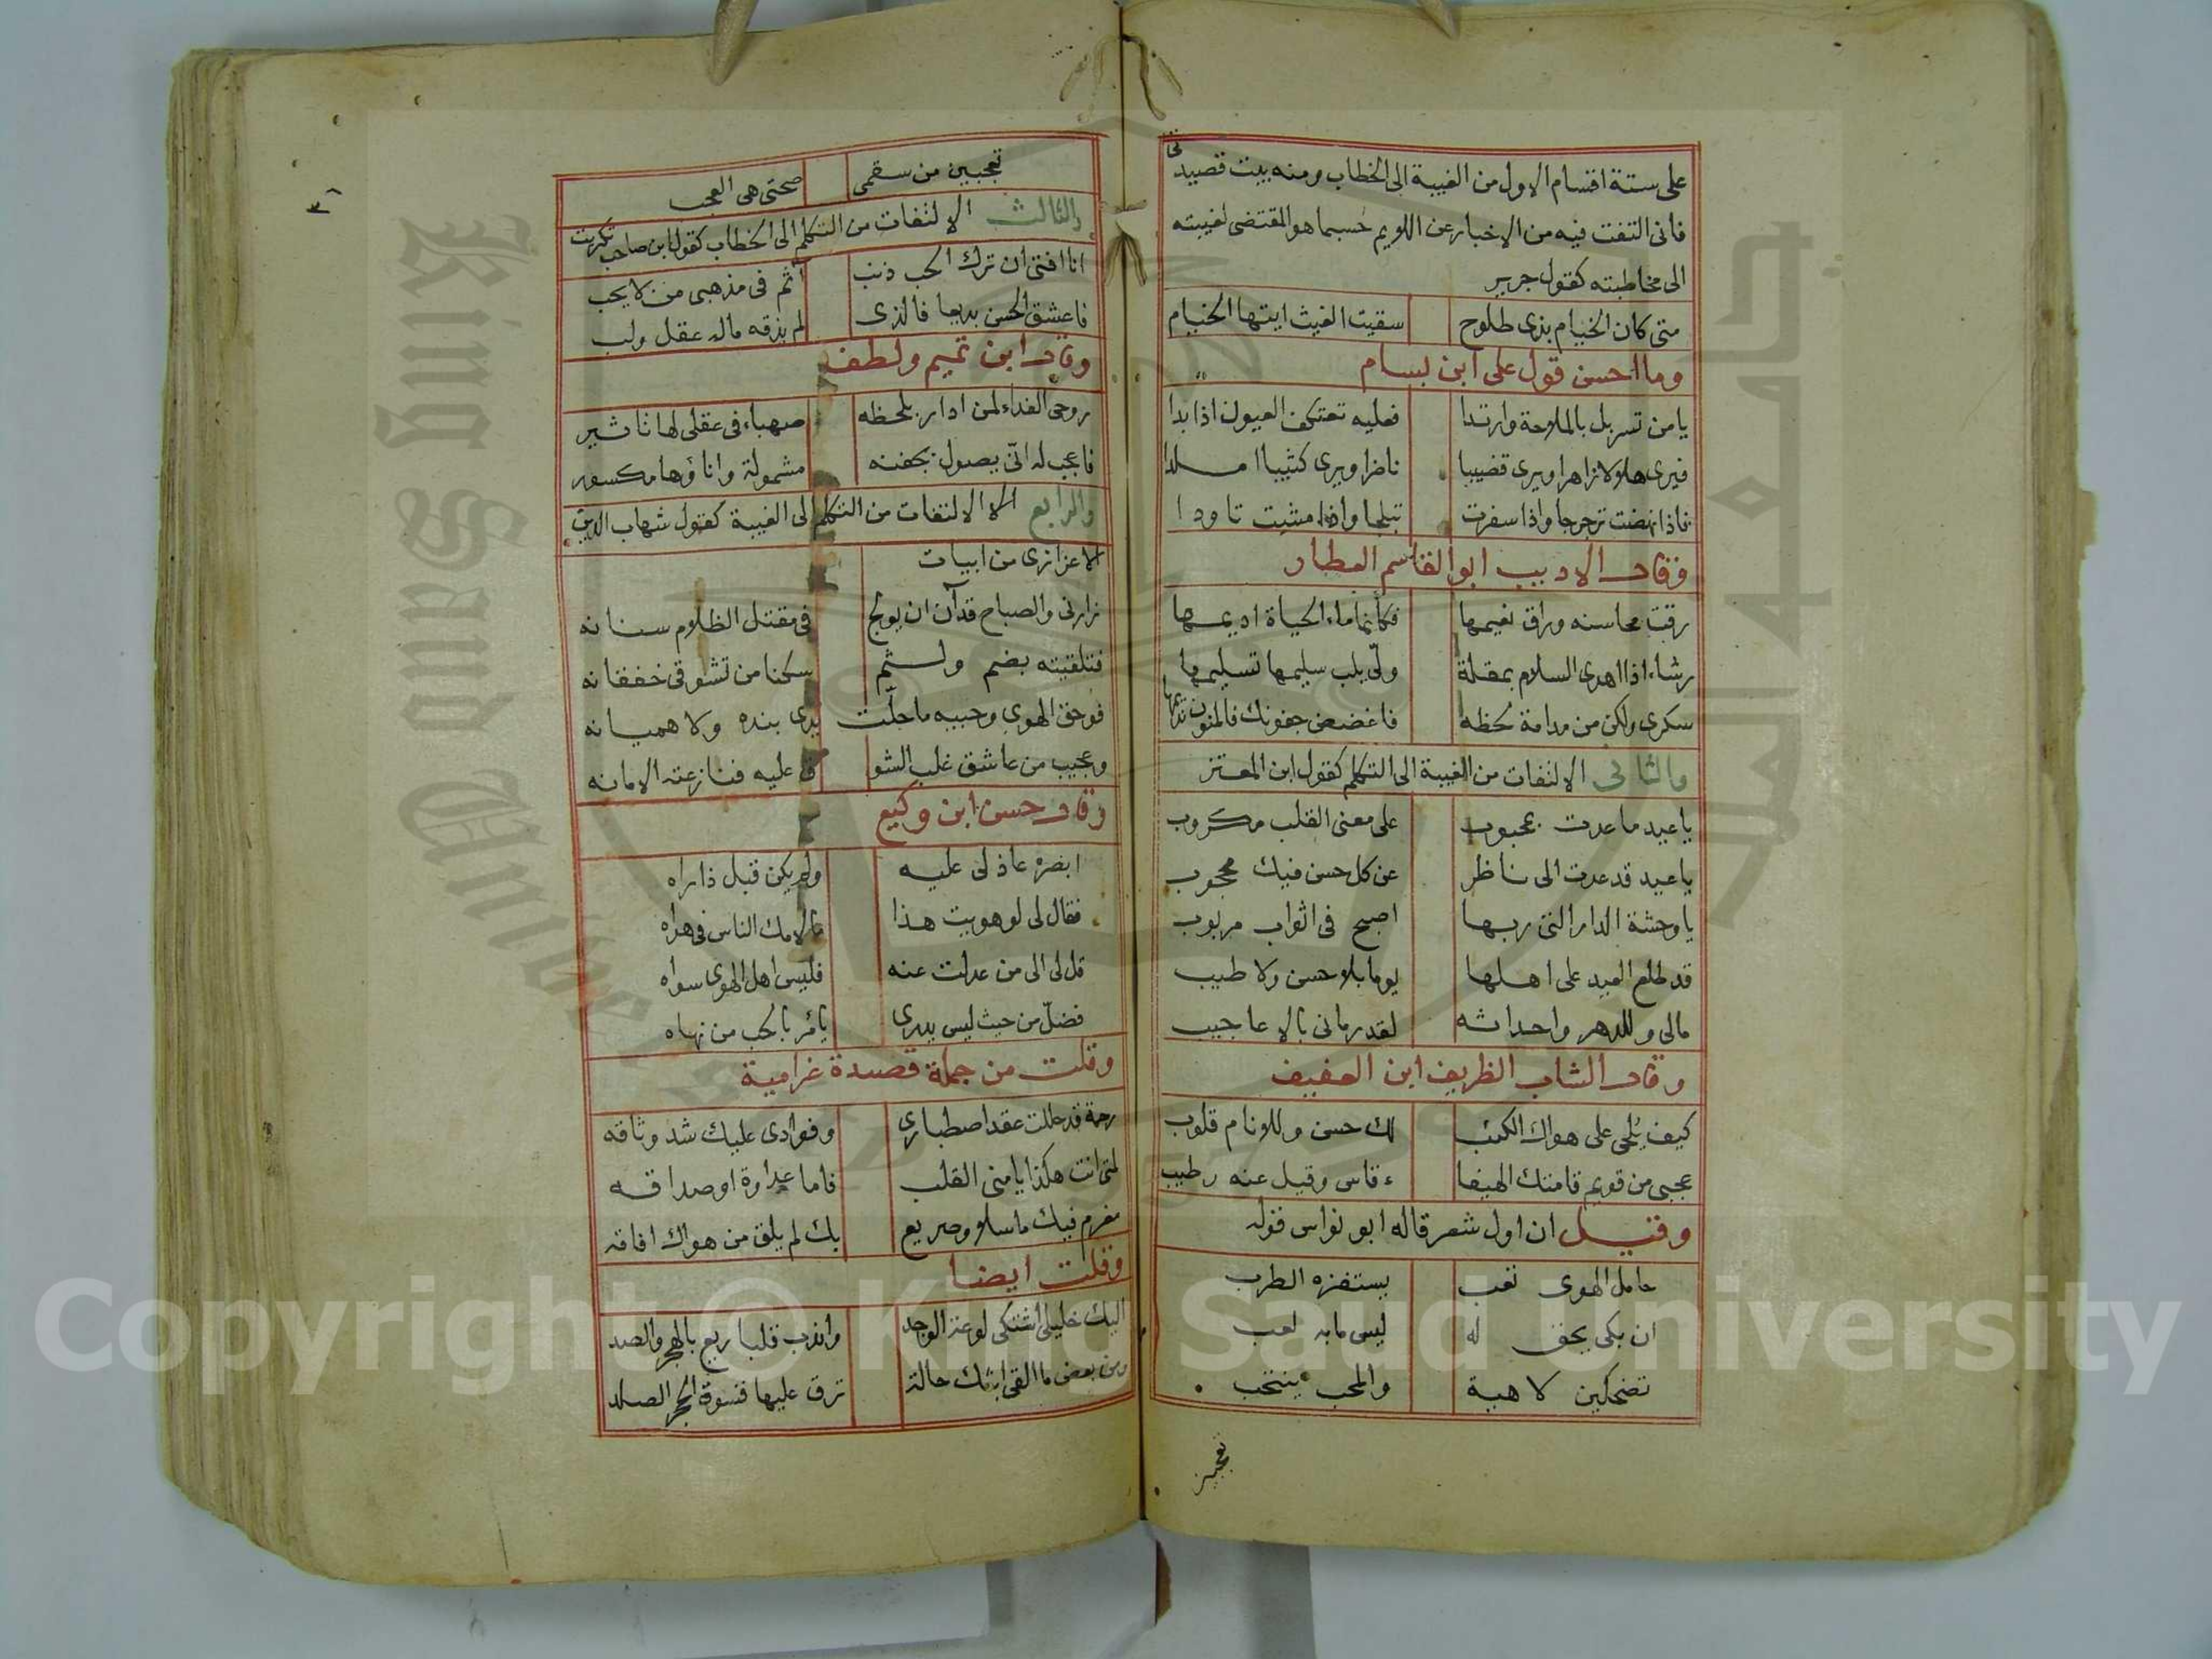 على ستة اقسام الاول من الغيبة الى الخطاب ومنه بيت قصيدتى
فانى التفت فيه من الاخبار عن اللويم حسبما هو المقتضى لغيبته
الى مخاطبته كقول جرير
متى كان الخيام بذى طلوح سقيت الغيث ايتها الخيام
وما احسن قول على ابن بسام
يا من تسربل بالملاحة وارتدا فعليه تعتكف العيون اذا بدا
فيرى هلالا زاهرا ويرى قضيبا ناضرا ويرى كثيبا املدا
فاذا نهضت ترجرجا واذا سفرت تبلجا واذا مشيت تاودا
وقال الاديب ابو القاسم العطار
رقت محاسنه وراق نعيمها فكانما ماء الحياة اديمها
رشاء اذا اهدى السلام بمقلة ولّى بلب سليمها تسليمها
سكرى ولكن من مدامة لحظه فاغضض جفونك فالمنون نديمها
والثانى الالتفات من الغيبة الى التكلم كقول ابن المعتز
يا عيد ما عدت بمحبوب على معنى القلب مكروب
يا عيد قد عدت الى ناظر عن كل حسن فيك محجوب
يا وحشة الدار التى ربها اصبح فى اثواب مربوب
قد طلع العيد على اهلها يوما بلا حسن ولا طيب
مالى وللدهر واحداثه لقد رمانى بالاعاجيب
وقال الشاب الظريف ابن العفيف
كيف يُلحى على هواك الكئيب لك حسن وللانام قلوب
عجبى من قويم قامتك الهيفا ء قاس وقيل عنه رطيب
وقيل ان اول شعر قاله ابو نواس قوله
حامل الهوى تعب يستفزه الطرب
ان بكى يحق له ليس ما به لعب
تضحكين لاهية والمحب ينتحب
تعجبين
٣١
تعجبين من سقمى صحتى هى العجب
والثالث الالتفات من التكلم الى الخطاب كقول ابن صاحب تكريت
انا افتى ان ترك الحب ذنب آثم فى مذهبى من لا يحب
فاعشق الحسن بديعا فالذى لم يذقه ماله عقل ولب
وقال ابن تميم ولطف
روحى الفداء لمن ادار بلحظه صهباء فى عقلى لها تاثير
فاعجب له انّى يصول بجفنه مشمولة واناؤها مكسور
والرابع الالتفات من التكلم الى الغيبة كقول شهاب الدين
الاعزازى من ابيات
زارنى والصباح قد آن ان يولج فى مقتل الظلام سنانه
فتلقيته بضم ولثم سكنا من تشوقى خفقانه
فوحق الهوى وحبيه ما حلّت يدى بنده ولا هميانه
وعجيب من عاشق غلب الشو ق عليه فنازعته الامانه
وقال حسن ابن وكيع
ابصره عاذلى عليه ولم يكن قبل ذا راه
فقال لى لو هويت هذا ما لامك الناس فى هواه
قل لى الى من عدلت عنه فليس اهل الهوى سواه
فضلّ من حيث ليس يدرى يامر بالحب من نهاه
وقلت من جملة قصيدة غرامية
رحمة قد حللت عقد اصطبارى وفوادى عليك شد وثاقه
لمتى انت هكذا يا منى القلب فاما عداوة او صداقه
مغرم فيك ما سلا وصريع بك لم يلق من هواك افاقه
وقلت ايضا
اليك خليلى اشتكى لوعة الوجد واندب قلبا ريع بالهجر والصد
ومن بعض ما القى ابثك حالة ترق عليها قسوة الحجر الصلد
Copyright © King Saud University
King Saud University